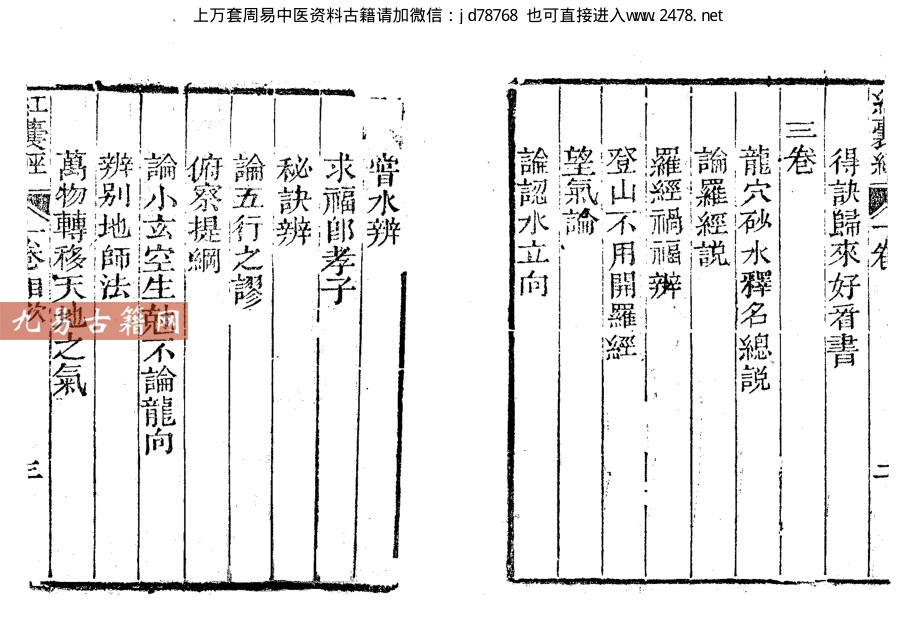 上万套周易中医资料古籍请加微信：jd78768 也可直接进入www.2478.net
得訣歸來好看書
三卷
龍穴砂水釋名總說
論羅經説
羅經禍福辨
登山不用開羅經
望氣論
論認水立向
二
嘗水辨
求福郎孝子
秘訣辨
論五行之謬
俯察提綱
論小玄空生尅不論龍向
辨别地師法
萬物轉移天地之氣
一卷目次
三
九易古籍网